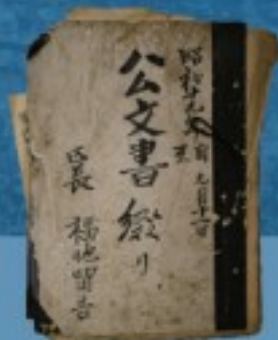 昭和十九年 自 九月十一日
至
公文書綴り
区長 福地留吉